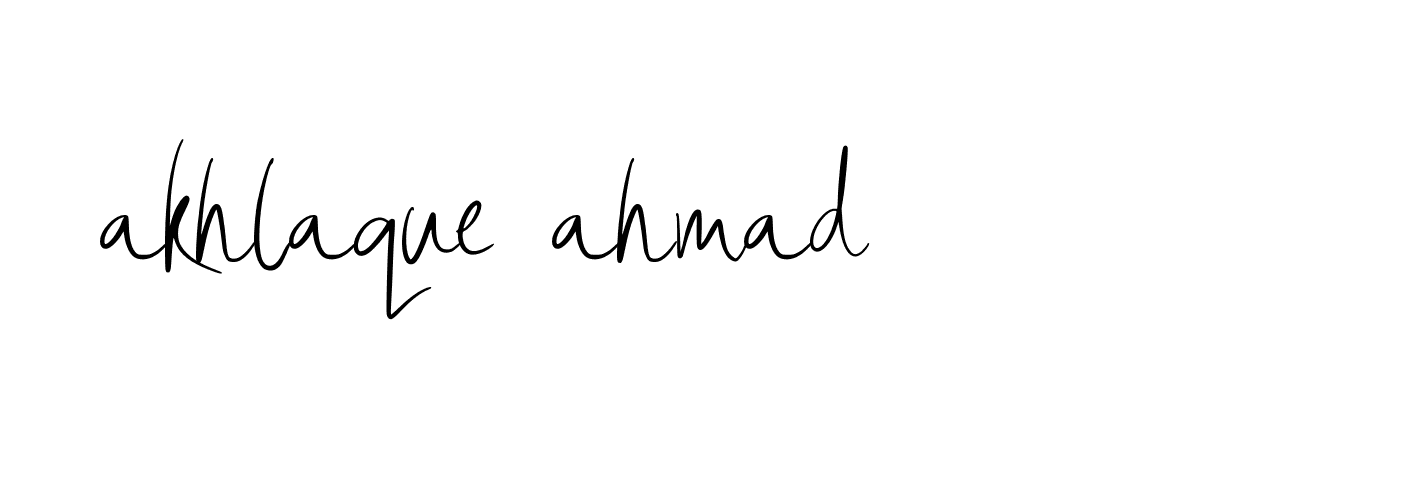 akhlaque ahmad